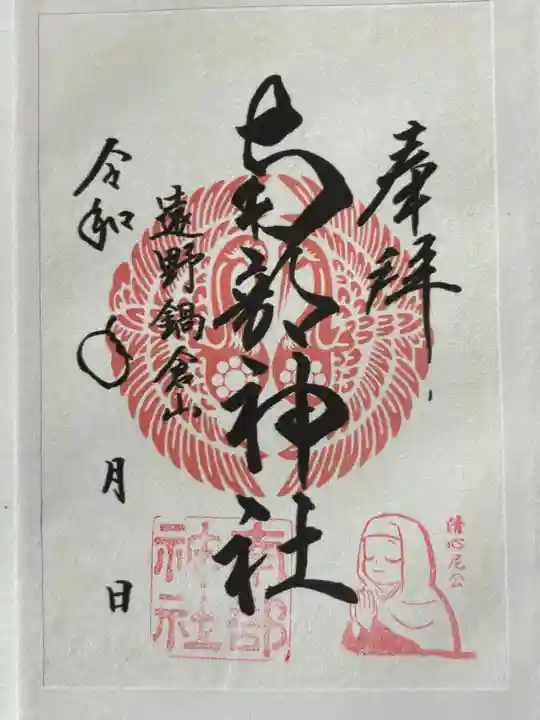 奉拝
南部神社
遠野鍋倉山
令和
月
日
南部
神社
清心尼公